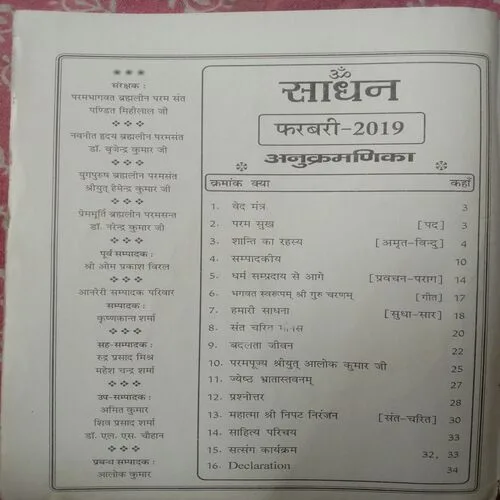 संरक्षक :
परमभागवत ब्रह्मलीन परम संत
पण्डित मिहीलाल जी
नवनीत हृदय ब्रह्मलीन परमसंत
डॉ. बृजेन्द्र कुमार जी
युगपुरुष ब्रह्मलीन परमसंत
श्रीयुत् हेमेन्द्र कुमार जी
प्रेममूर्ति ब्रह्मलीन परमसन्त
डॉ. नरेन्द्र कुमार जी
पूर्व सम्पादक :
श्री ओम प्रकाश विरल
आनरेरी सम्पादक परिवार
सम्पादक:
कृष्णकान्त शर्मा
सह-सम्पादक :
रुद्र प्रसाद मिश्र
महेश चन्द्र शर्मा
उप-सम्पादक :
अमित कुमार
शिव प्रसाद शर्मा
डॉ. एल. एस. चौहान
प्रबन्ध सम्पादक :
आलोक कुमार
ॐ
साधन
फरबरी-2019
अनुक्रमणिका
क्रमांक क्या कहाँ
1. वेद मंत्र 3
2. परम सुख [पद] 3
3. शान्ति का रहस्य [अमृत-विन्दु] 4
4. सम्पादकीय 10
5. धर्म सम्प्रदाय से आगे [प्रवचन-पराग] 14
6. भगवत स्वरूपम् श्री गुरु चरणम् [गीत] 17
7. हमारी साधना [सुधा-सार] 18
8. संत चरित 20
9. बदलता जीवन 22
10. परमपूज्य श्रीयुत् आलोक कुमार जी 25
11. ज्येष्ठ भ्रातास्तवनम् 27
12. प्रश्नोत्तर 28
13. महात्मा श्री निपट निरंजन [संत-चरित] 30
14. साहित्य परिचय 33
15. सत्संग कार्यक्रम 32, 33
16. Declaration 34